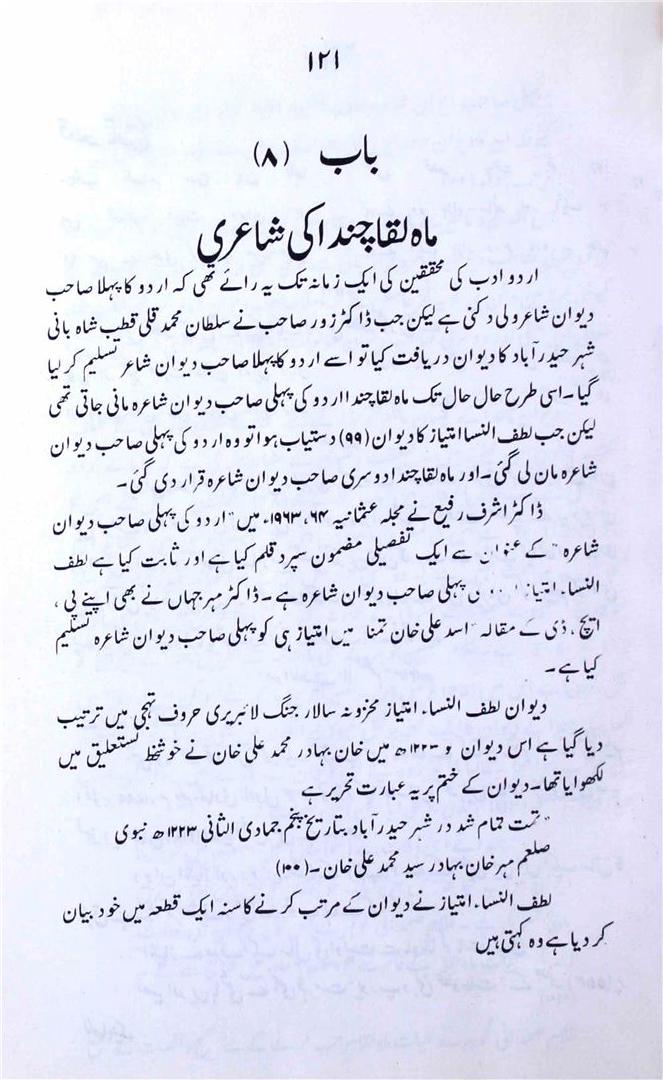 ۱۲۱
باب (۸)
ماہ لقا چندا کی شاعری
اردو ادب کی محققین کی ایک زمانہ تک یہ رائے تھی کہ اردو کا پہلا صاحب
دیوان شاعر ولی دکنی ہے لیکن جب ڈاکٹر زور صاحب نے سلطان محمد قلی قطب شاہ بانی
شہر حیدرآباد کا دیوان دریافت کیا تو اسے اردو کا پہلا صاحب دیوان شاعر تسلیم کر لیا
گیا۔ اسی طرح حال حال تک ماہ لقا چندا اردو کی پہلی صاحب دیوان شاعرہ مانی جاتی تھی
لیکن جب لطف النسا امتیاز کا دیوان (۹۹) دستیاب ہوا تو وہ اردو کی پہلی صاحب دیوان
شاعرہ مان لی گئی۔ اور ماہ لقا چندا دوسری صاحب دیوان شاعرہ قرار دی گئی۔
ڈاکٹر اشرف رفیع نے مجلہ عثمانیہ ۶۴، ۱۹۶۳ء میں "اردو کی پہلی صاحب دیوان
شاعرہ" کے عنوان سے ایک تفصیلی مضمون سپرد قلم کیا ہے اور ثابت کیا ہے لطف
النساء امتیاز پہلی صاحب دیوان شاعرہ ہے۔ ڈاکٹر مہر جہاں نے بھی اپنے پی،
ایچ، ڈی کے مقالہ "اسد علی خان تمنا" میں امتیاز ہی کو پہلی صاحب دیوان شاعرہ تسلیم
کیا ہے۔
دیوان لطف النساء امتیاز مخزونہ سالار جنگ لائبریری حروف تہجی میں ترتیب
دیا گیا ہے اس دیوان و ۱۲۲۳ھ میں خان بہادر محمد علی خان نے خوشخط نستعلیق میں
لکھوایا تھا۔ دیوان کے ختم پر یہ عبارت تحریر ہے
"تمت تمام شد در شہر حیدرآباد بتاریخ پنجم جمادی الثانی ۱۲۲۳ھ نبوی
صلعم مہر خان بہادر سید محمد علی خان۔ (۱۰۰)
لطف النساء امتیاز نے دیوان کے مرتب کرنے کا سنہ ایک قطعہ میں خود بیان
کر دیا ہے وہ کہتی ہیں